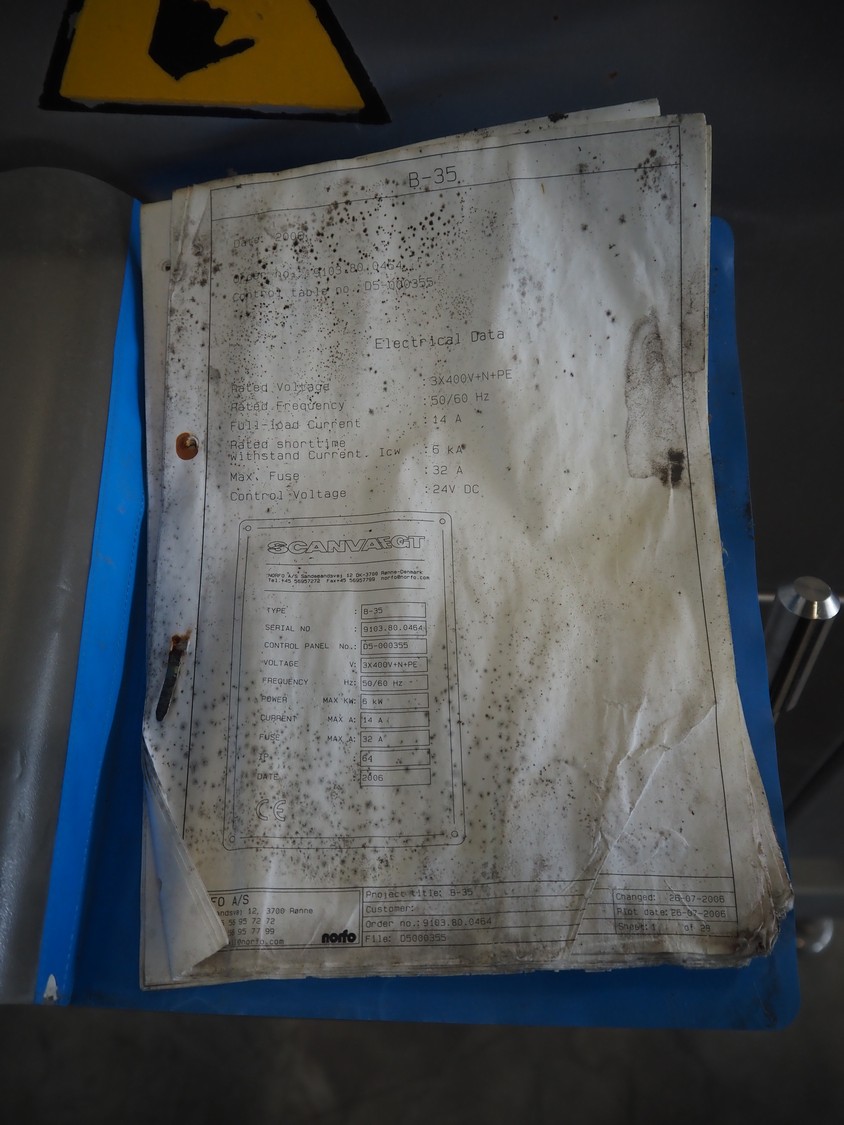 B-35
Date: 2006
Order no.: 9103.80.0464
control table no.: D5-000355
Electrical Data
Rated Voltage :3X400V+N+PE
Rated Frequency :50/60 Hz
Full-load Current :14 A
Rated shorttime
withstand Current. Icw :6 kA
Max. Fuse :32 A
Control Voltage :24V DC
SCANVAEGT
NORFO A/S Sandemandsvej 12 DK-3700 Rønne-Denmark
Tel.+45 56957272 Fax+45 56957799 norfo@norfo.com
TYPE : B-35
SERIAL NO : 9103.80.0464
CONTROL PANEL No.: D5-000355
VOLTAGE V: 3X400V+N+PE
FREQUENCY Hz: 50/60 Hz
POWER MAX KW: 6 kW
CURRENT MAX A: 14 A
FUSE MAX A: 32 A
IP : 64
DATE : 2006
CE
FO A/S
andsvej 12, 3700 Rønne
56 95 72 72
56 95 77 99
@norfo.com
norfo
Project title: B-35
Customer:
Order no.: 9103.80.0464
File: D5000355
Changed: 26-07-2006
Plot date: 26-07-2006
Sheet: 1 of 29